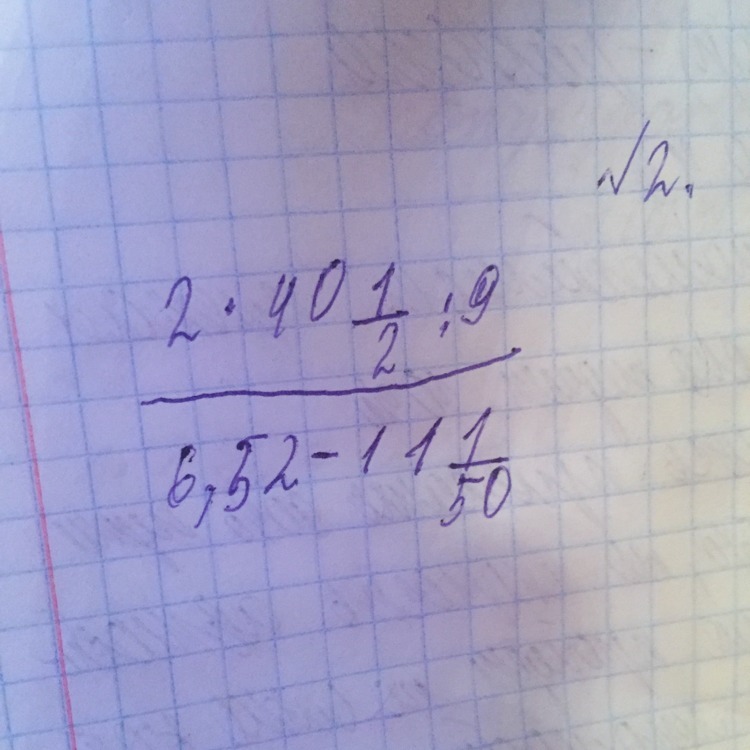 √2.
2 · 40 1/2 : 9
6,52 - 11 1/50